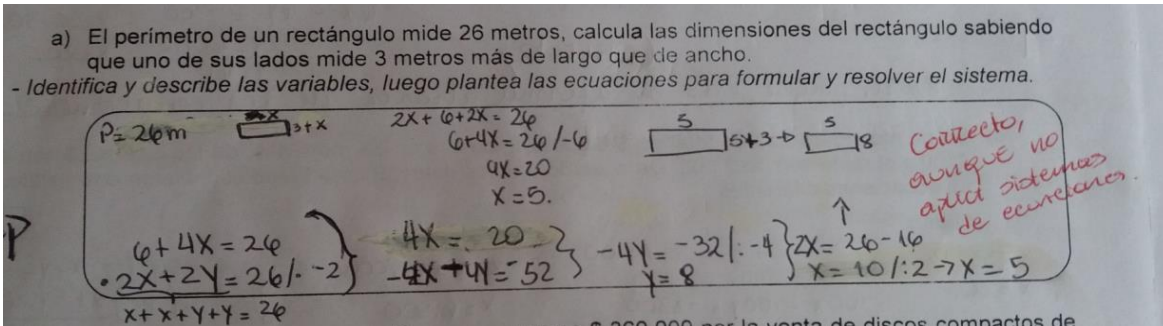 a) El perímetro de un rectángulo mide 26 metros, calcula las dimensiones del rectángulo sabiendo
que uno de sus lados mide 3 metros más de largo que de ancho.
- Identifica y describe las variables, luego plantea las ecuaciones para formular y resolver el sistema.
P= 26m
x
3+x
2x + 6+2x = 26
6+4x = 26 /-6
4x = 20
x = 5.
5
5+3→
5
8
Correcto,
aunque no
aplica sistemas
de ecuaciones.
P
6 + 4x = 26
• 2x + 2y = 26 /· -2
x + x + y + y = 26
4x = 20
-4x + 4y = -52
-4y = -32 /: -4
y = 8
2x = 26-16
x = 10 /:2 → x = 5
por la venta de discos compactos de